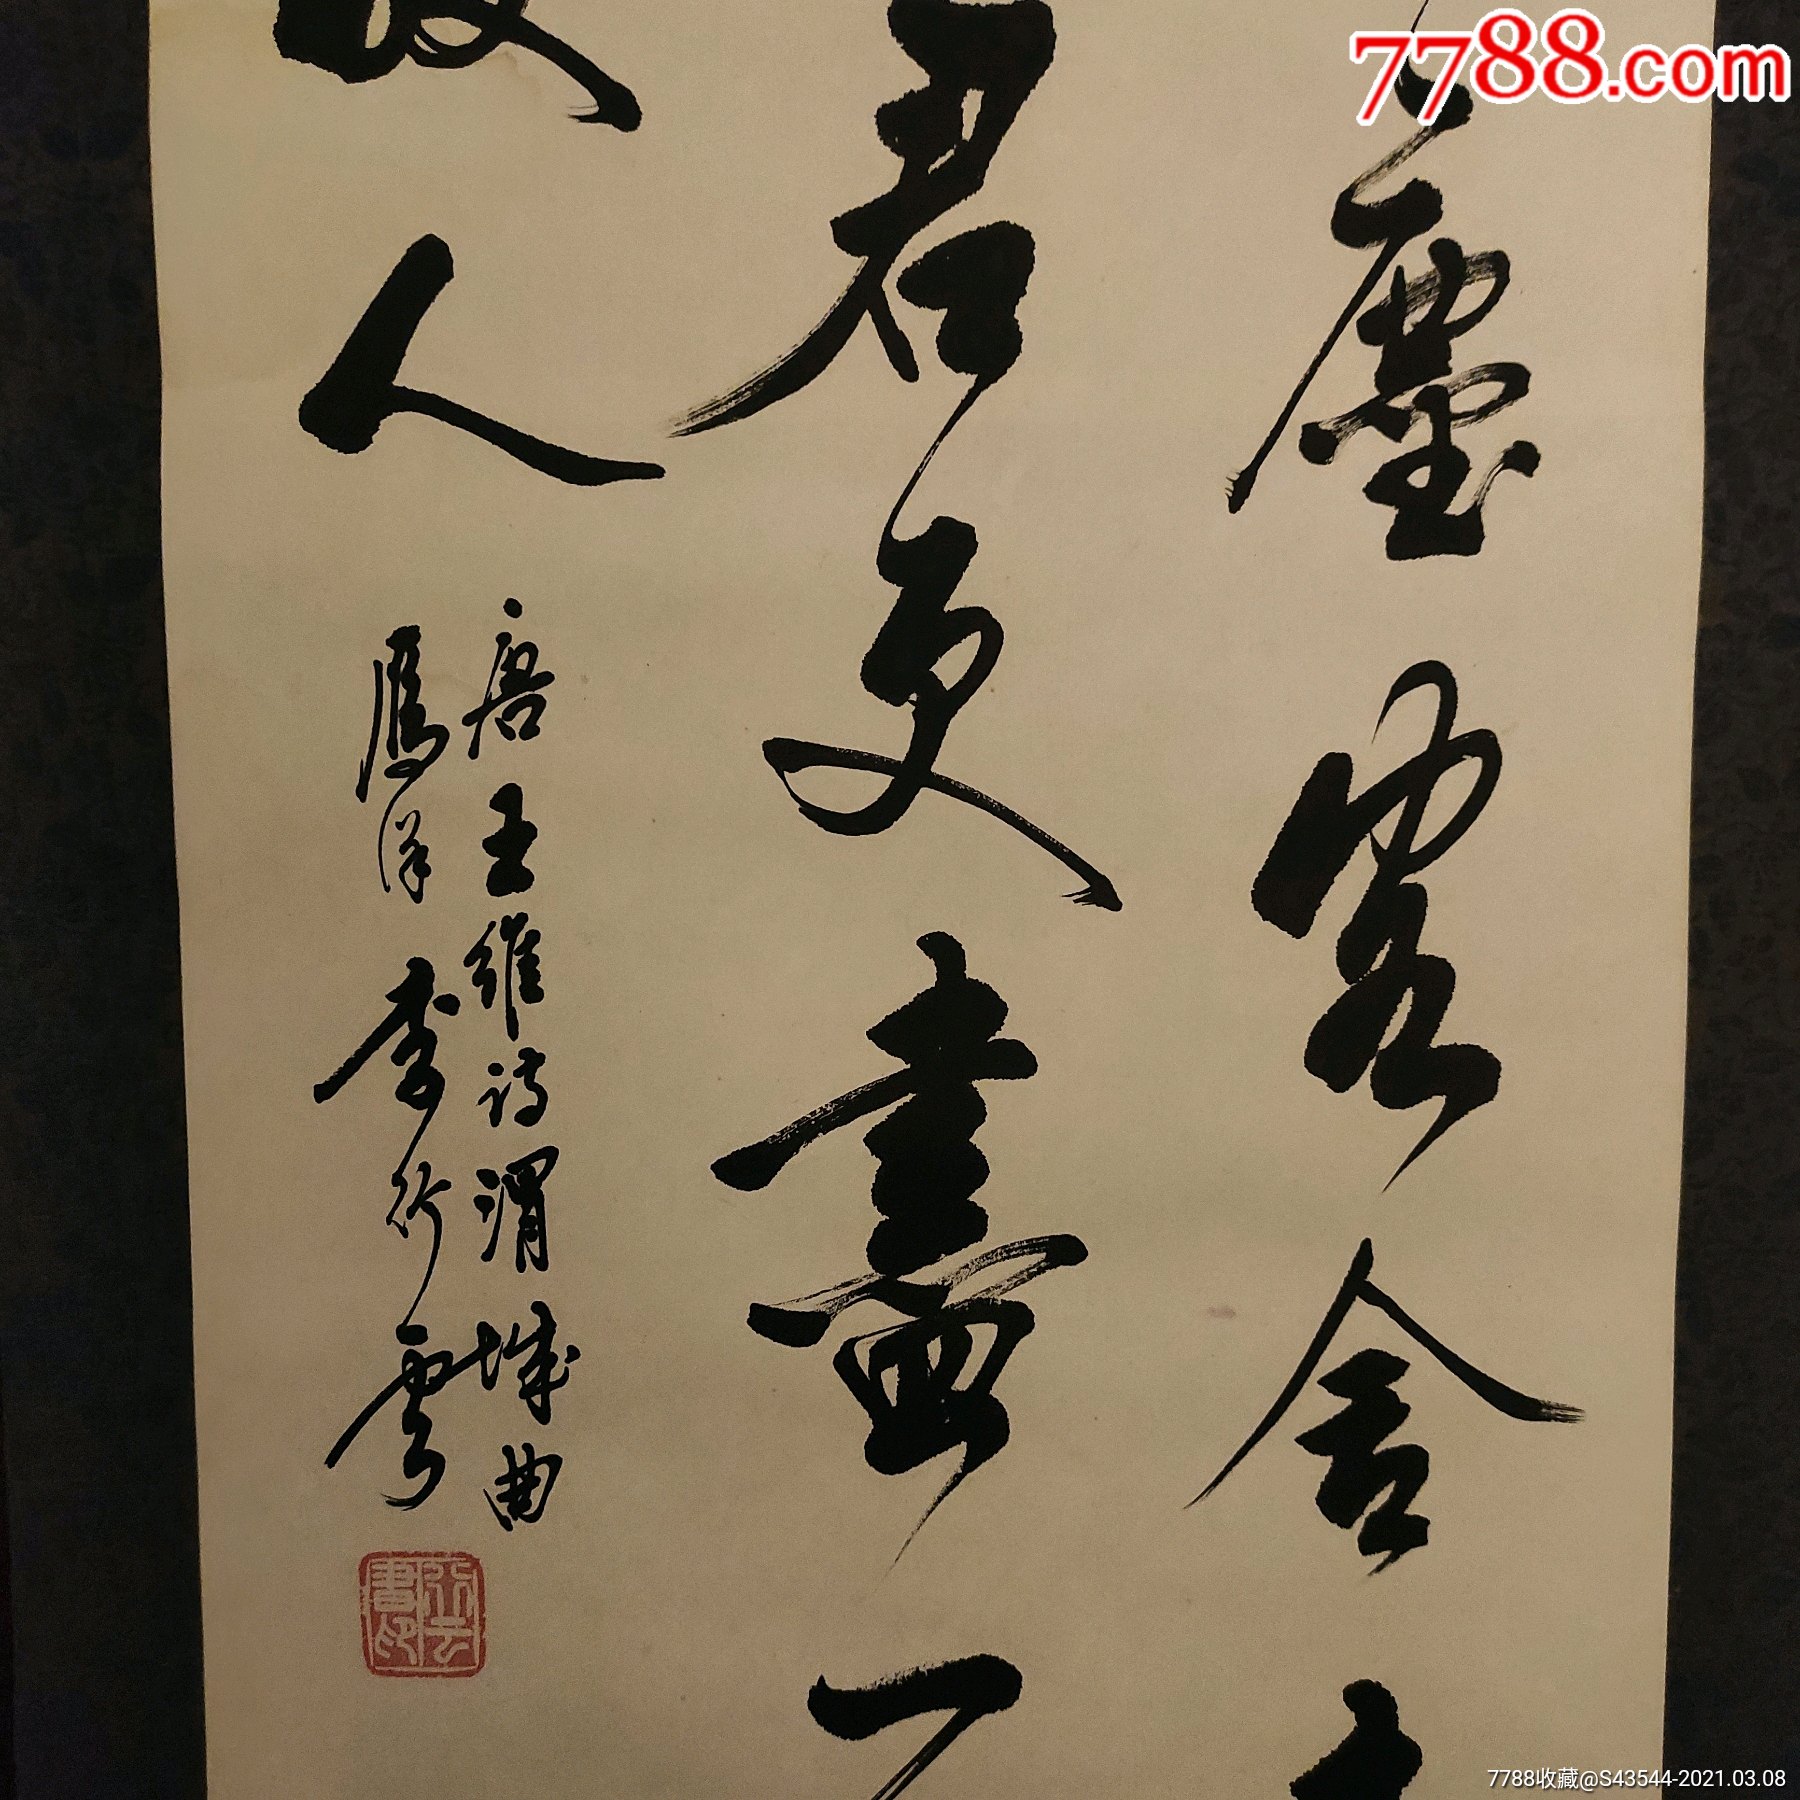 7788.com
塵客舍青
君更盡一
故人
唐王維詩渭城曲
李行雲
7788收藏@S43544-2021.03.08